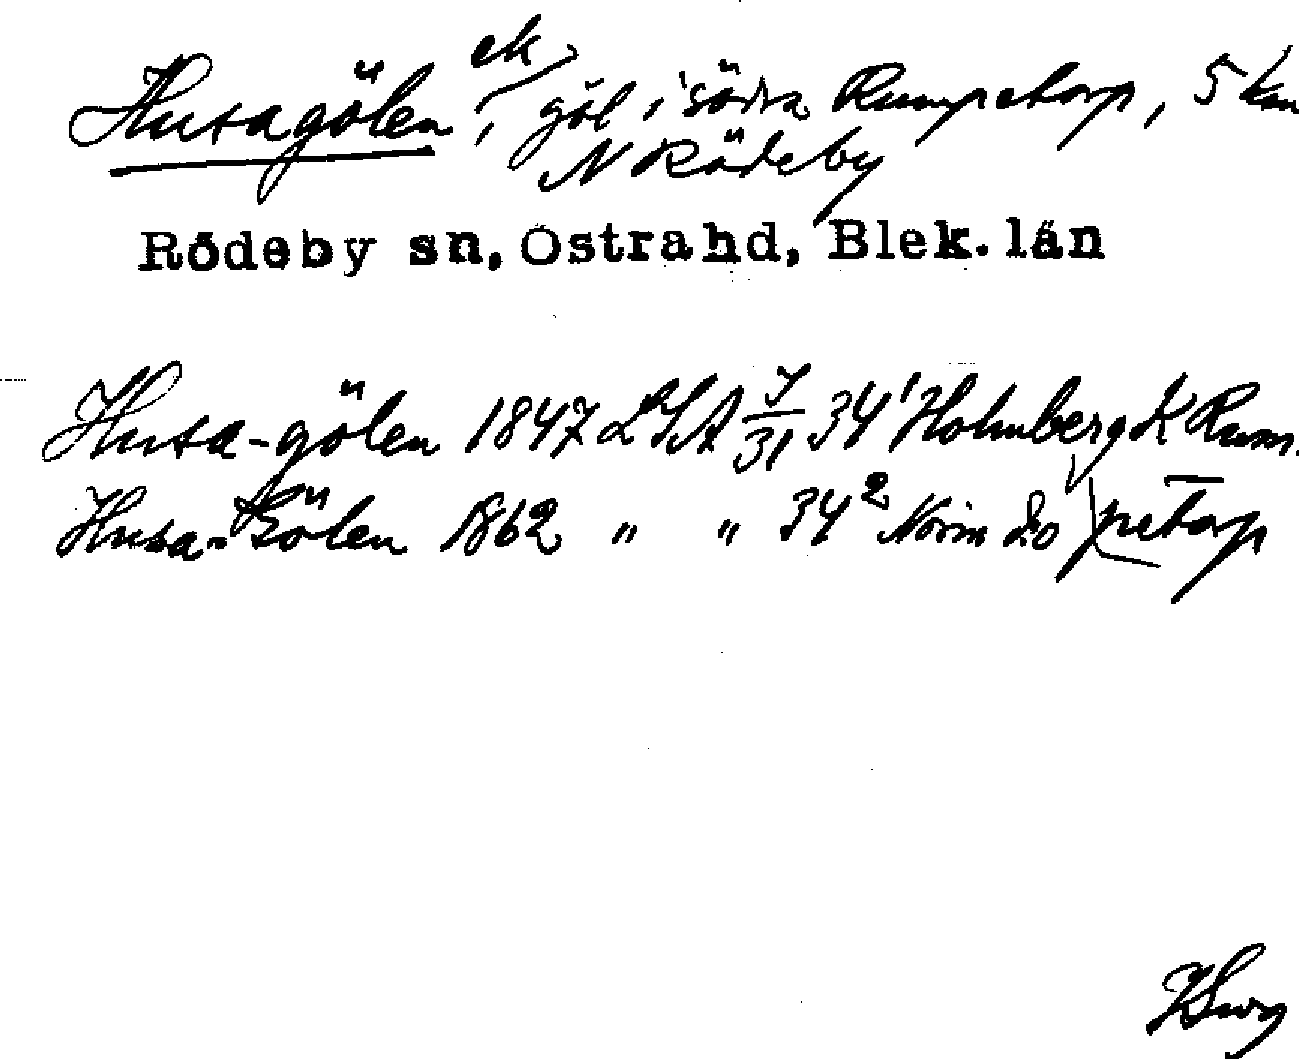 Husagölen, ek, göl i södra Rumpetorp, 5 km
N Rödeby
Rödeby sn, Östra hd, Blek. län
Husa-gölen 1847 LSA 7/31 34¹ Holmberg K Rum-
Husa-Gölen 1862 " " 34² Norin do petorp